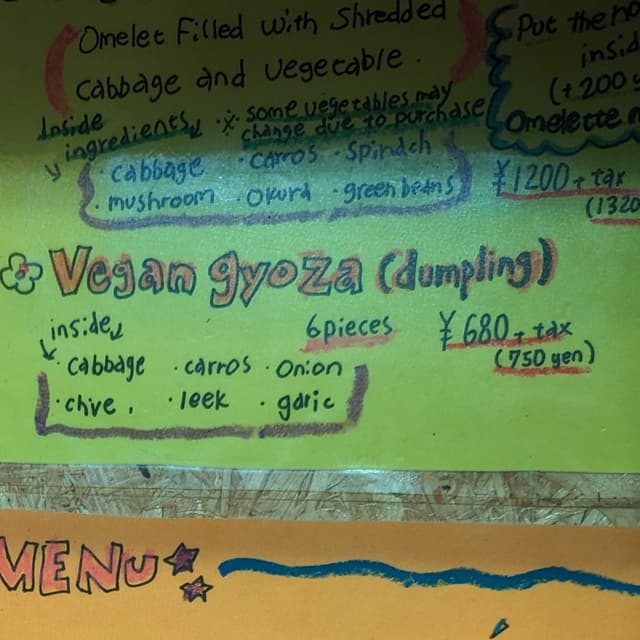 Omelet Filled with Shredded
cabbage and vegetable.
Inside
ingredients
※ some vegetables may
change due to purchase
· cabbage · carros · spinach
· mushroom · okura · green beans
Put the
insid
(+200
Omelette
¥1200+tax
(1320
Vegan gyoza (dumpling)
inside
6pieces
¥680+tax
(750 yen)
· cabbage · carros · onion
· chive, · leek · garic
MENU